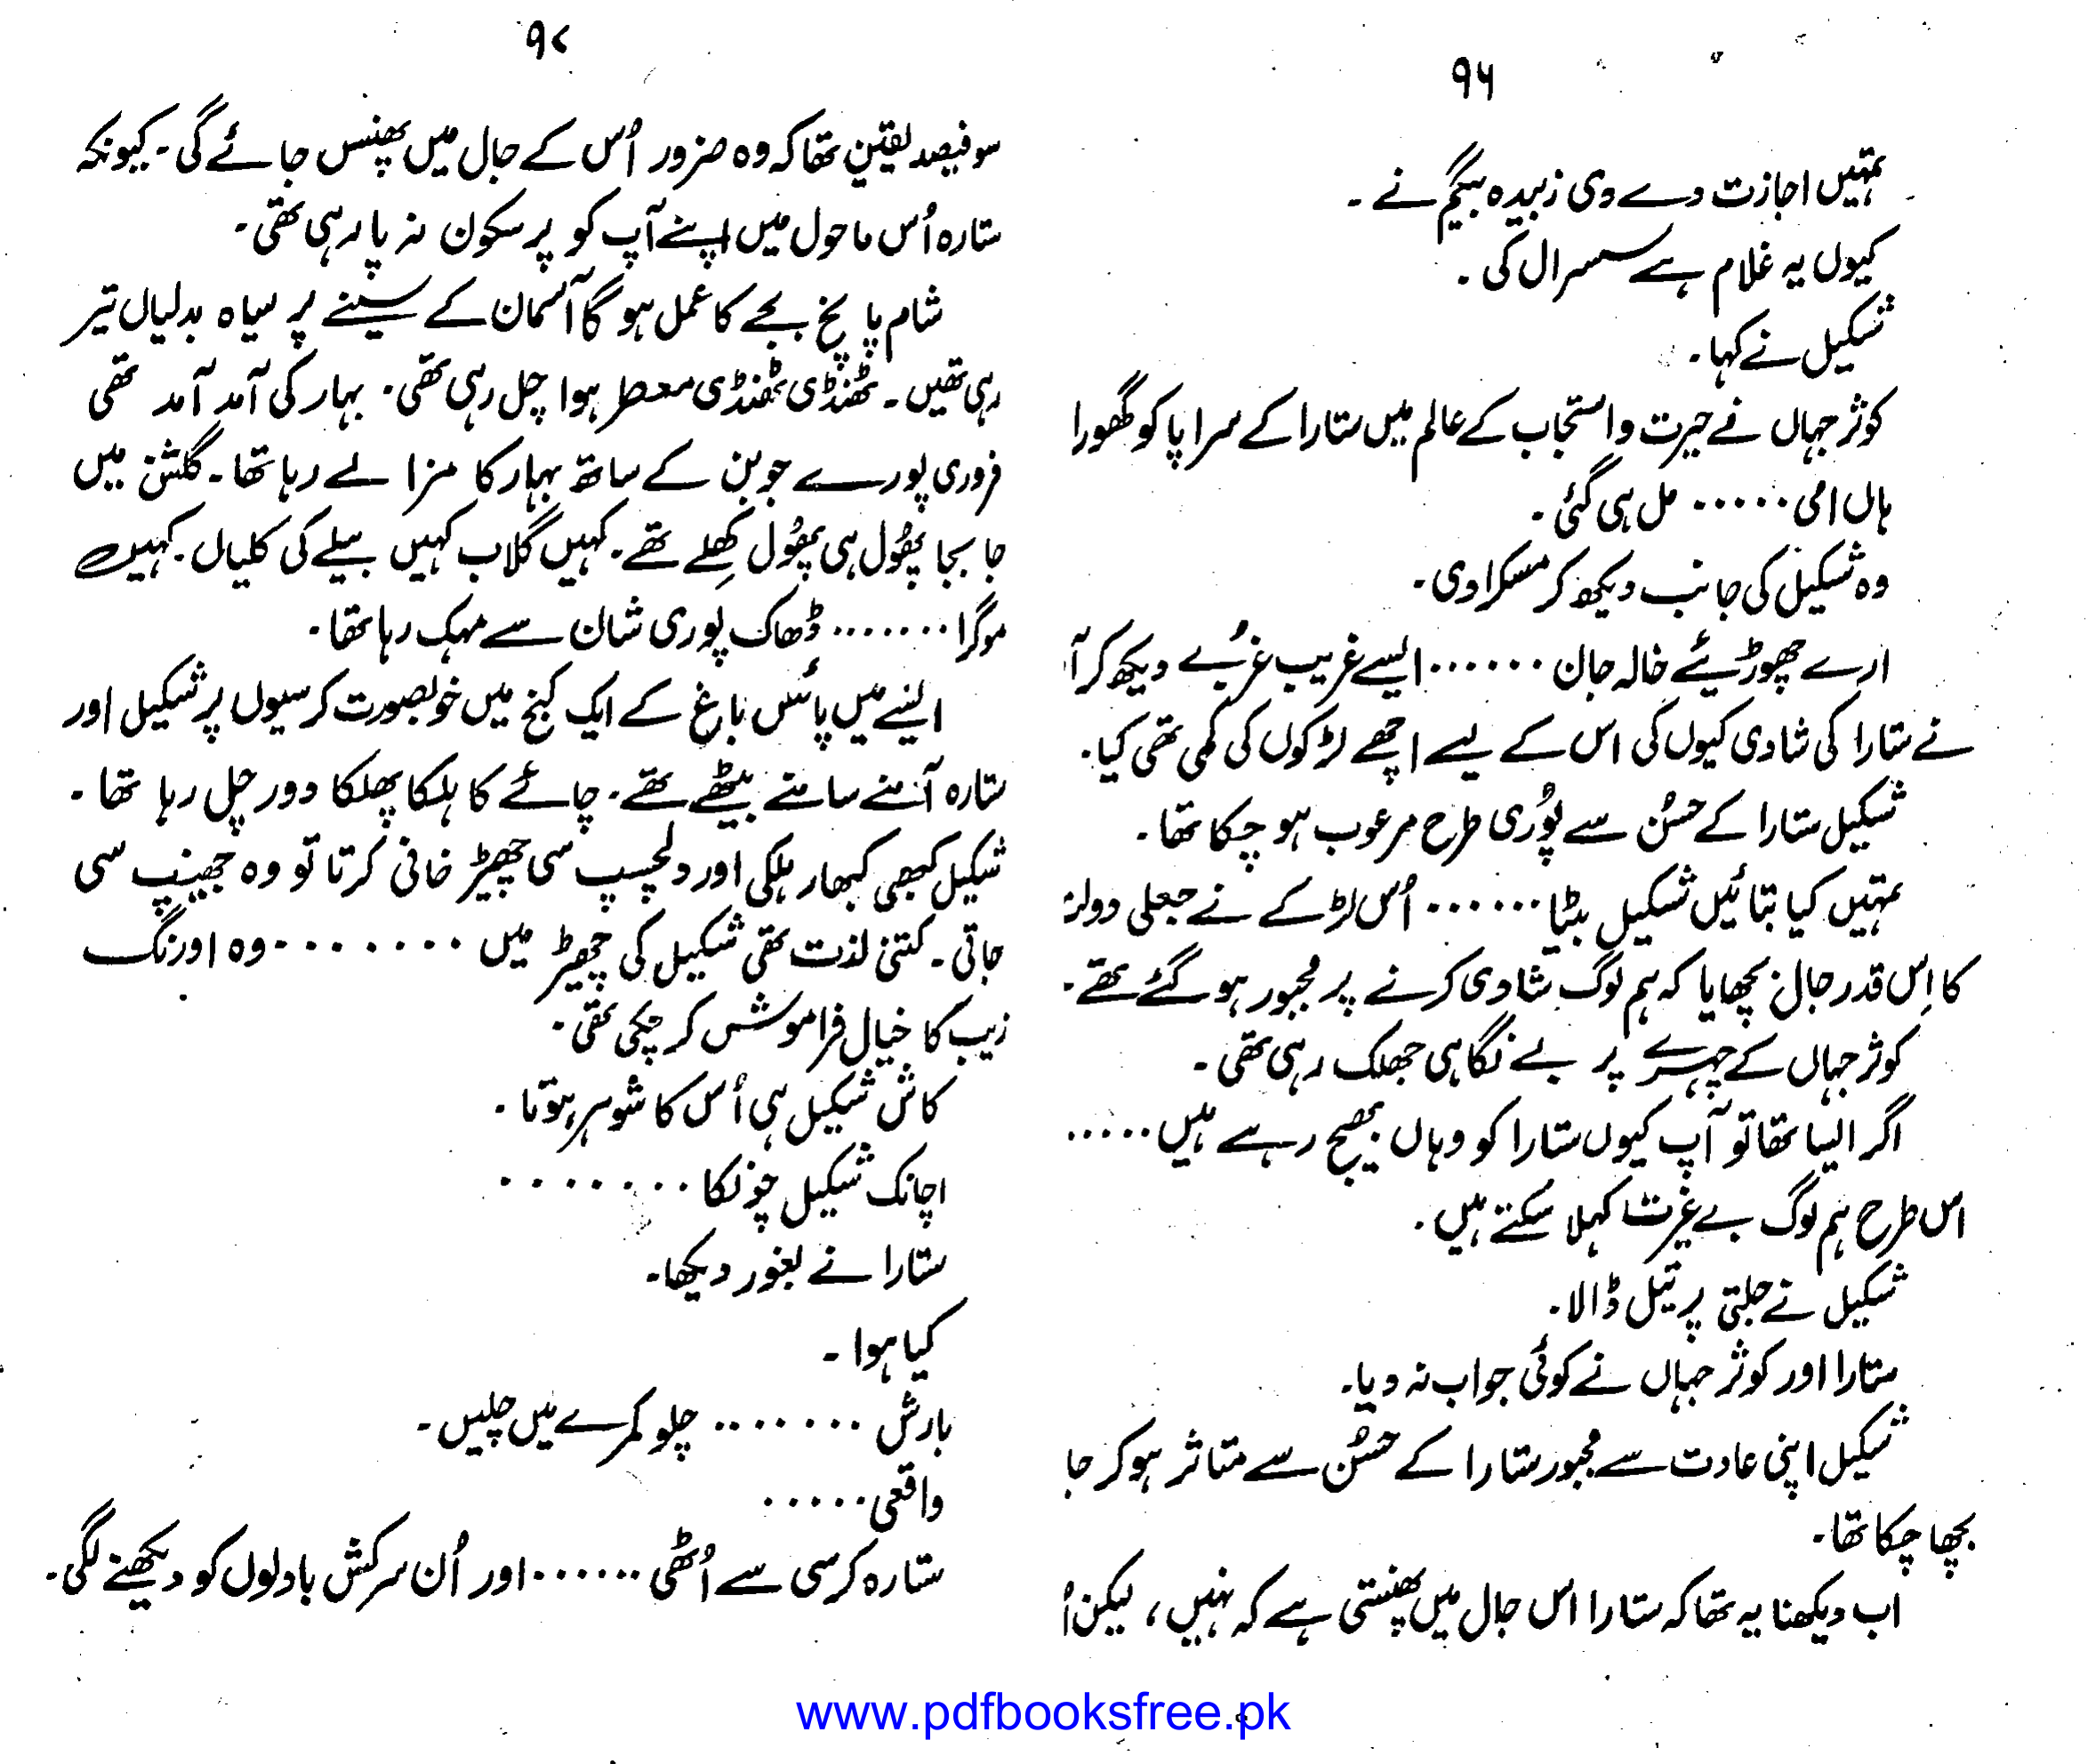 ۹۶
تمہیں اجازت دے دی زبیدہ بیگم نے ۔
کیوں یہ غلام ہے سسرال کی ۔
شکیل نے کہا ۔
کوثر جہاں نے حیرت و استجاب کے عالم میں ستارا کے سراپا کو گھورا
ہاں امی ..... مل ہی گئی ۔
وہ شکیل کی جانب دیکھ کر مسکرا دی ۔
ارے چھوڑیئے خالہ جان ...... ایسے غریب غربے دیکھ کر آ
نے ستارا کی شادی کیوں کی اس کے لیے اچھے لڑکوں کی کمی تھی کیا ۔
شکیل ستارا کے حسُن سے پوُری طرح مرعوب ہو چکا تھا ۔
تمہیں کیا بتائیں شکیل بیٹا ...... اُس لڑکے نے جعلی دولت
کا اِس قدر جال بچھایا کہ ہم لوگ شادی کرنے پر مجبور ہو گئے تھے ۔
کوثر جہاں کے چہرے پر بے نگاہی جھلک رہی تھی ۔
اگر ایسا تھا تو آپ کیوں ستارا کو وہاں بھیج رہے ہیں .....
اس طرح ہم لوگ بے غیرت کہلا سکتے ہیں ۔
شکیل نے جلتی پر تیل ڈالا ۔
ستارا اور کوثر جہاں نے کوئی جواب نہ دیا ۔
شکیل اپنی عادت سے مجبور ستارا کے حسُن سے متاثر ہو کر جا
بچھا چکا تھا ۔
اب دیکھنا یہ تھا کہ ستارا اس جال میں پھنستی ہے کہ نہیں ، لیکن اُ
۹۷
سو فیصد یقین تھا کہ وہ ضرور اُس کے جال میں پھنس جائے گی ۔ کیونکہ
ستارہ اُس ماحول میں اپنے آپ کو پر سکون نہ پا رہی تھی ۔
شام پانچ بجے کا عمل ہو گا آسمان کے سینے پر سیاہ بدلیاں تیر
رہی تھیں ۔ ٹھنڈی ٹھنڈی معطر ہوا چل رہی تھی ۔ بہار کی آمد آمد تھی
فروری پورے جوبن کے ساتھ بہار کا مزا لے رہا تھا ۔ گلشن میں
جا بجا پھوُل ہی پھوُل کھِلے تھے ۔ کہیں گلاب کہیں بیلے کی کلیاں ۔ کہیں
موگرا ....... ڈھاک پوری شان سے مہک رہا تھا ۔
ایسے میں پائیں باغ کے ایک کنج میں خوبصورت کرسیوں پر شکیل اور
ستارہ آمنے سامنے بیٹھے تھے ۔ چائے کا ہلکا پھلکا دور چل رہا تھا ۔
شکیل کبھی کبھار ہلکی اور دلچسپ سی چھیڑ خانی کرتا تو وہ جھینپ سی
جاتی ۔ کتنی لذت تھی شکیل کی چھیڑ میں ........ وہ اورنگ
زیب کا خیال فراموش کر چکی تھی ۔
کاش شکیل ہی اُس کا شوہر ہوتا ۔
اچانک شکیل چونکا ........
ستارا نے بغور دیکھا ۔
کیا ہوا ۔
بارش ....... چلو کمرے میں چلیں ۔
واقعی .....
ستارہ کرسی سے اُٹھی ...... اور اُن سرکش بادلوں کو دیکھنے لگی ۔
www.pdfbooksfree.pk